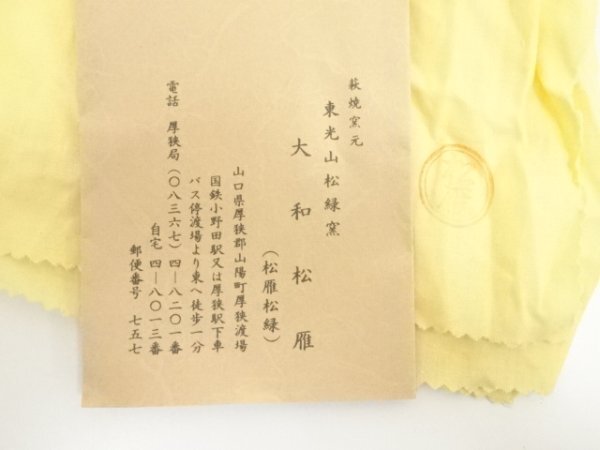 萩焼窯元
東光山松緑窯
大和松雁
(松雁松緑)
山口県厚狭郡山陽町厚狭渡場
国鉄小野田駅又は厚狭駅下車
バス停渡場より東へ徒歩一分
電話 厚狭局(〇八三六七)四―八二〇一番
自宅 四―八〇一三番
郵便番号 七五七